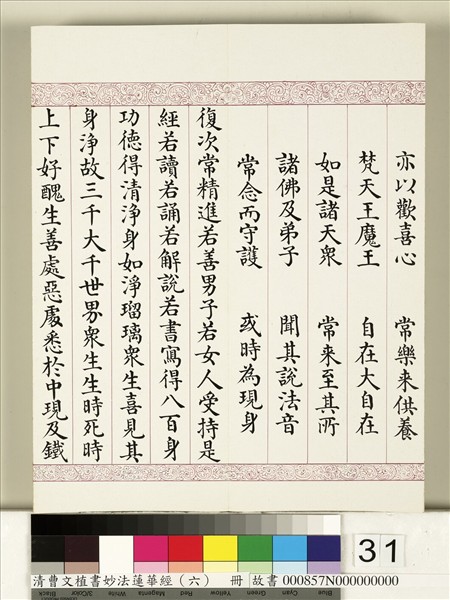 亦以歡喜心　常樂来供養
梵天王魔王　自在大自在
如是諸天衆　常来至其所
諸佛及弟子　聞其說法音
常念而守護　或時為現身
復次常精進若善男子若女人受持是
經若讀若誦若解說若書寫得八百身
功德得清淨身如淨瑠璃衆生喜見其
身淨故三千大千世界衆生生時死時
上下好醜生善處惡處悉於中現及鐵
31
清曹文植書妙法蓮華經（六）　冊　故書 000857N000000000
Black 3/Color White Magenta Red Yellow Green Cyan Blue